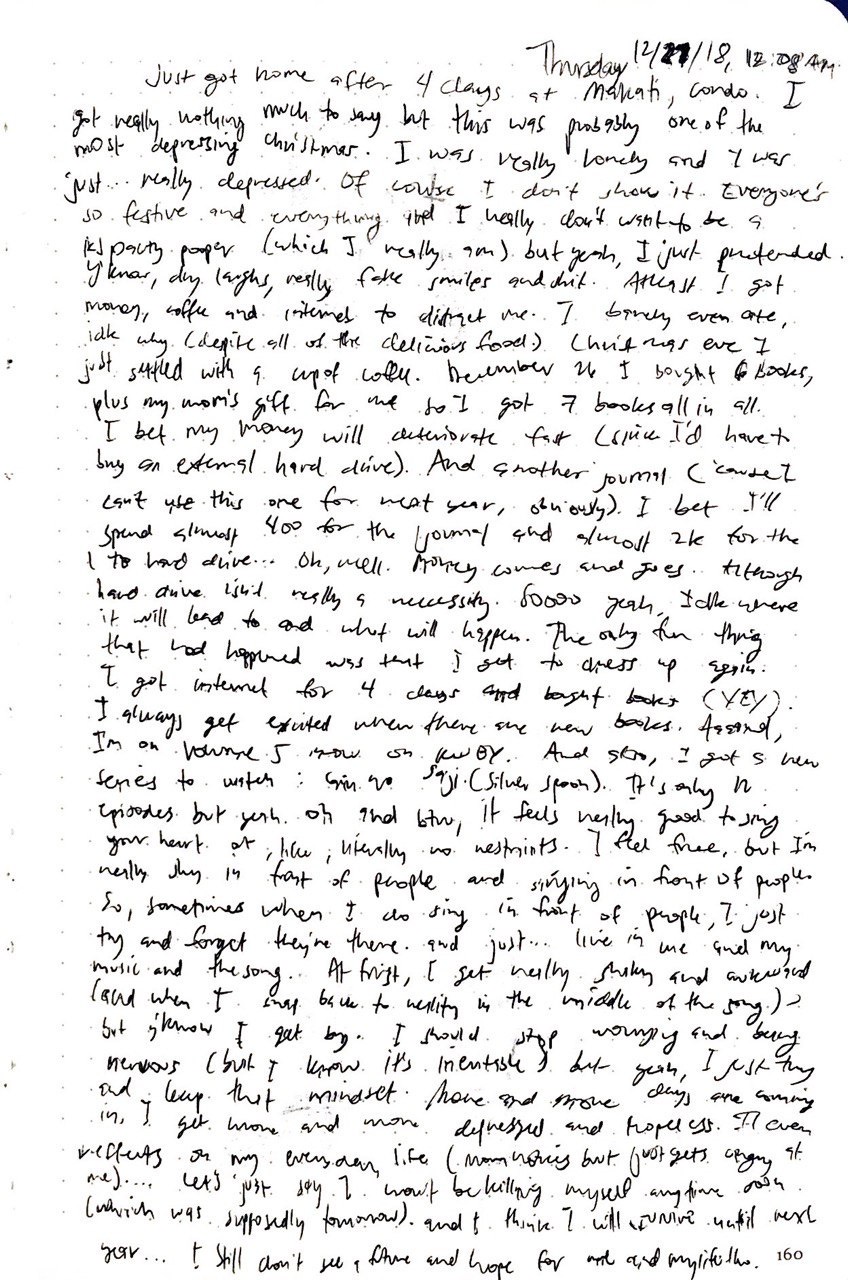 Thursday 12/27/18, 12:08 AM
Just got home after 4 days at Makati, condo. I
got really nothing much to say but this was probably one of the
most depressing christmas. I was really lonely and I was
just... really depressed. Of course I don't show it. Everyone's
so festive and everything and I really don't want to be a
party pooper (which I really am) but yeah, I just pretended.
Y'know, dry laughs, really fake smiles and shit. Atleast I got
money, coffee and internet to distract me. I barely even ate,
idk why (depite all of the delicious food) Christmas eve I
just settled with a cup of coffee. December 26 I bought 6 books,
plus my mom's gift for me so I got 7 books all in all.
I bet my money will deteriorate fast (since I'd have to
buy an external hard drive). And another journal ('cause I
can't use this one for next year, obviously). I bet I'll
spend almost 400 for the journal and almost 2k for the
1 tb hard drive... Oh, well. Money comes and goes. Although
hard drive isn't really a necessity. Soooo yeah, Idk where
it will lead to and what will happen. The only fun thing
that had happened was that I get to dress up again.
I got internet for 4 days and bought books (YEY).
I always get excited when there are new books.
I'm on Volume 5 now on RWBY. And also, I got a new
series to watch: Gin no Saji (Silver spoon). It's only
episodes but yeah. oh and btw, it feels really good to sing
your heart out, like, literally no restraints. I feel free, but I'm
really shy in front of people and singing in front of people
So, sometimes when I do sing in front of people, I just
try and forget they're there. and just... live in me and my
music and the song. At first, I get really shaky and awkward
(and when I snap back to reality in the middle of the song.)
but y'know I get by. I should stop worrying and being
nervous (but I know it's inevitable) but yeah, I just try
and keep that mindset. More and more days are coming
in, I get more and more depressed and hopeless. It even
effects on my everyday life (mom notices but just gets angry at
me).... Let's just say I won't be killing myself anytime soon
(which was supposedly tomorrow). and I think I will survive until next
year... I still don't see a future and hope for me and my life tho.
160